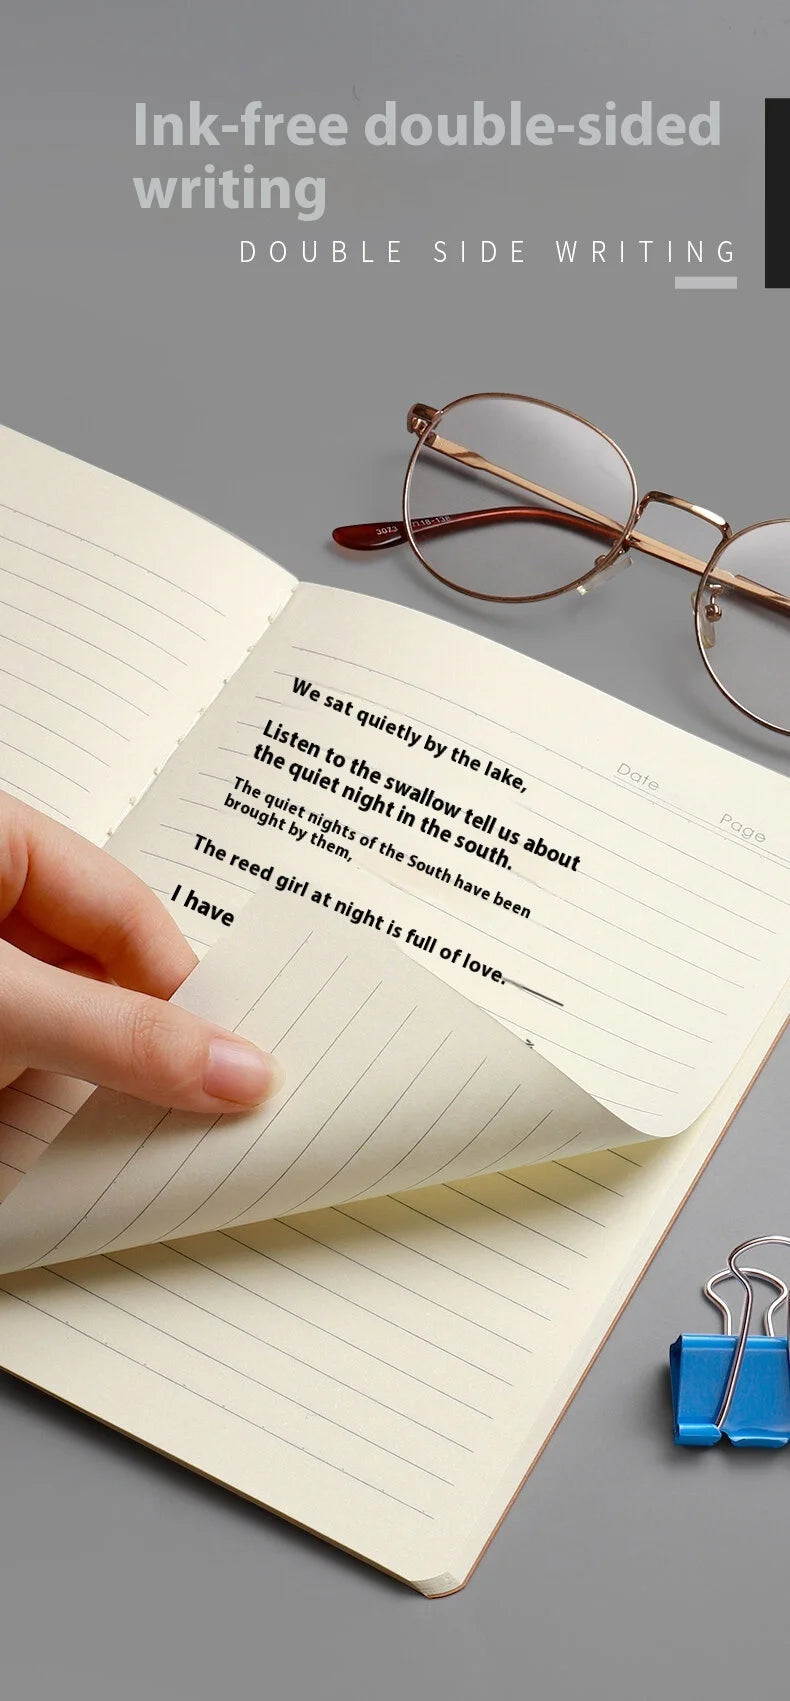 Ink-free double-sided
writing
DOUBLE SIDE WRITING
Date
Page
We sat quietly by the lake,
Listen to the swallow tell us about
the quiet night in the south.
The quiet nights of the South have been
brought by them,
The reed girl at night is full of love.
I have